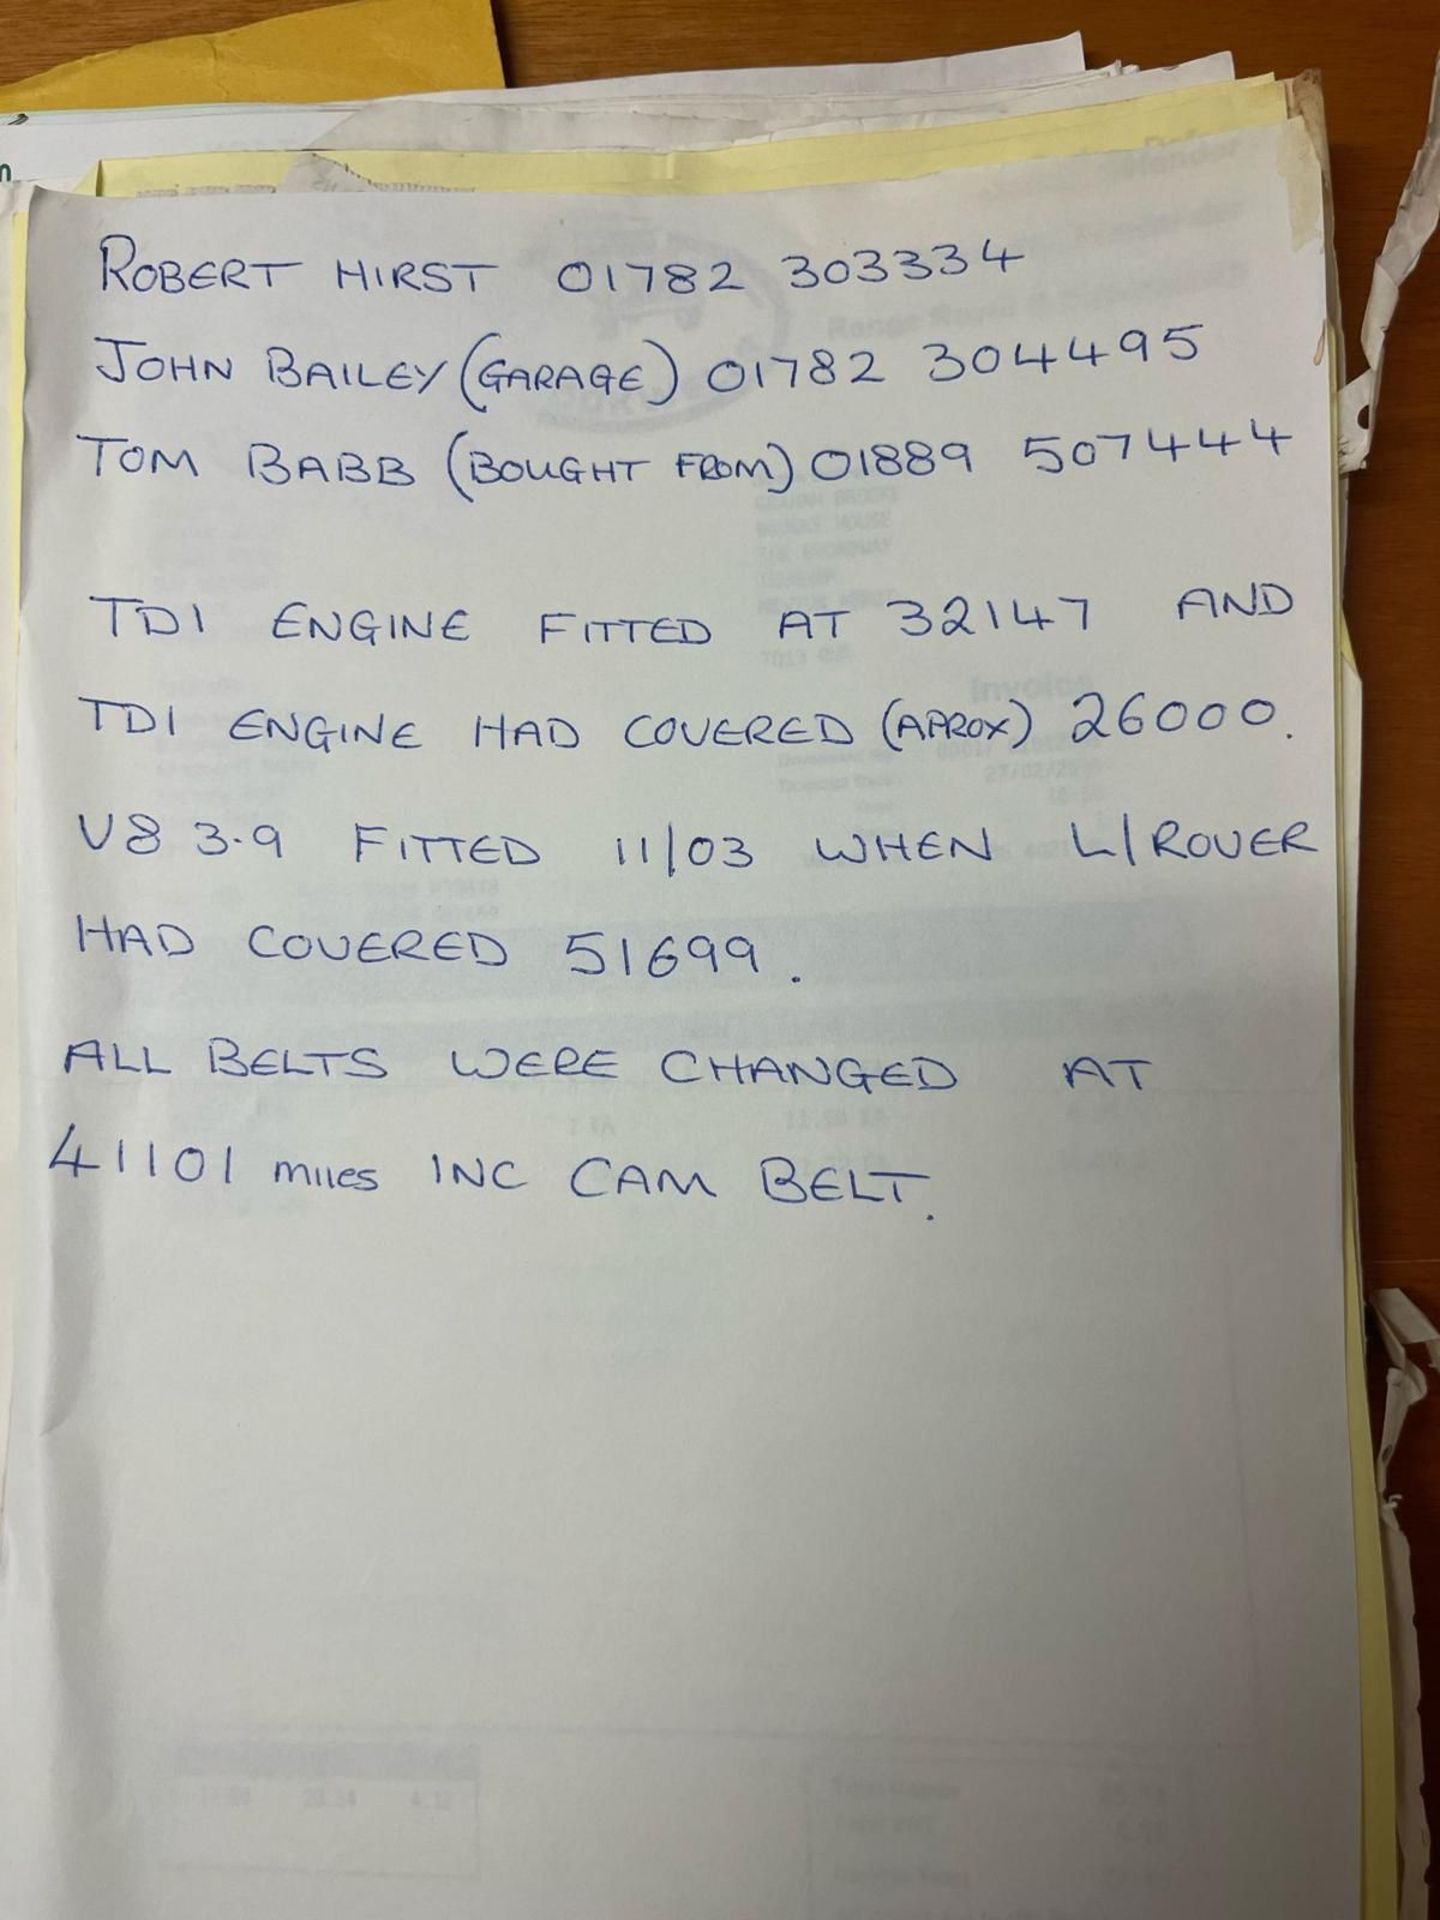 ROBERT HIRST 01782 303334
JOHN BAILEY (GARAGE) 01782 304495
TOM BABB (BOUGHT FROM) 01889 507444
TDI ENGINE FITTED AT 32147 AND
TDI ENGINE HAD COVERED (APROX) 26000.
V8 3.9 FITTED 11/03 WHEN L/ROVER
HAD COVERED 51699.
ALL BELTS WERE CHANGED AT
41101 miles INC CAM BELT.